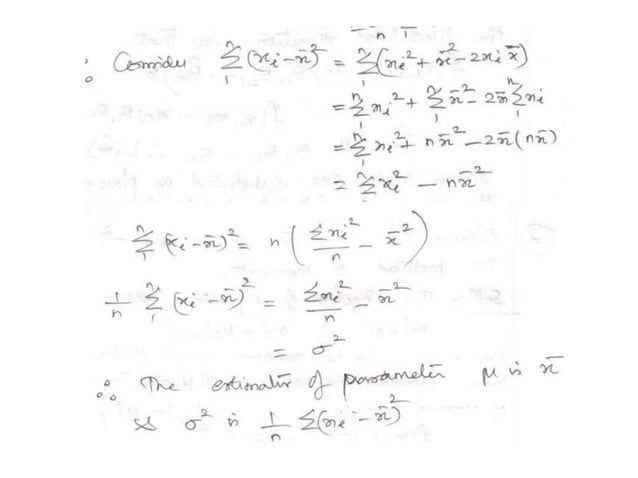 ∴ Consider n∑1 (xi - x̄)² = n∑1 (xi² + x̄² - 2xi x̄)
= n∑1 xi² + n∑1 x̄² - 2x̄ n∑1 xi
= n∑1 xi² + n x̄² - 2x̄ (n x̄)
= n∑1 xi² - n x̄²
n∑1 (xi - x̄)² = n ( ∑xi²/n - x̄² )
1/n n∑1 (xi - x̄)² = ∑xi²/n - x̄²
= σ²
∴ The estimator of parameter μ is x̄
& σ² is 1/n ∑(xi - x̄)²